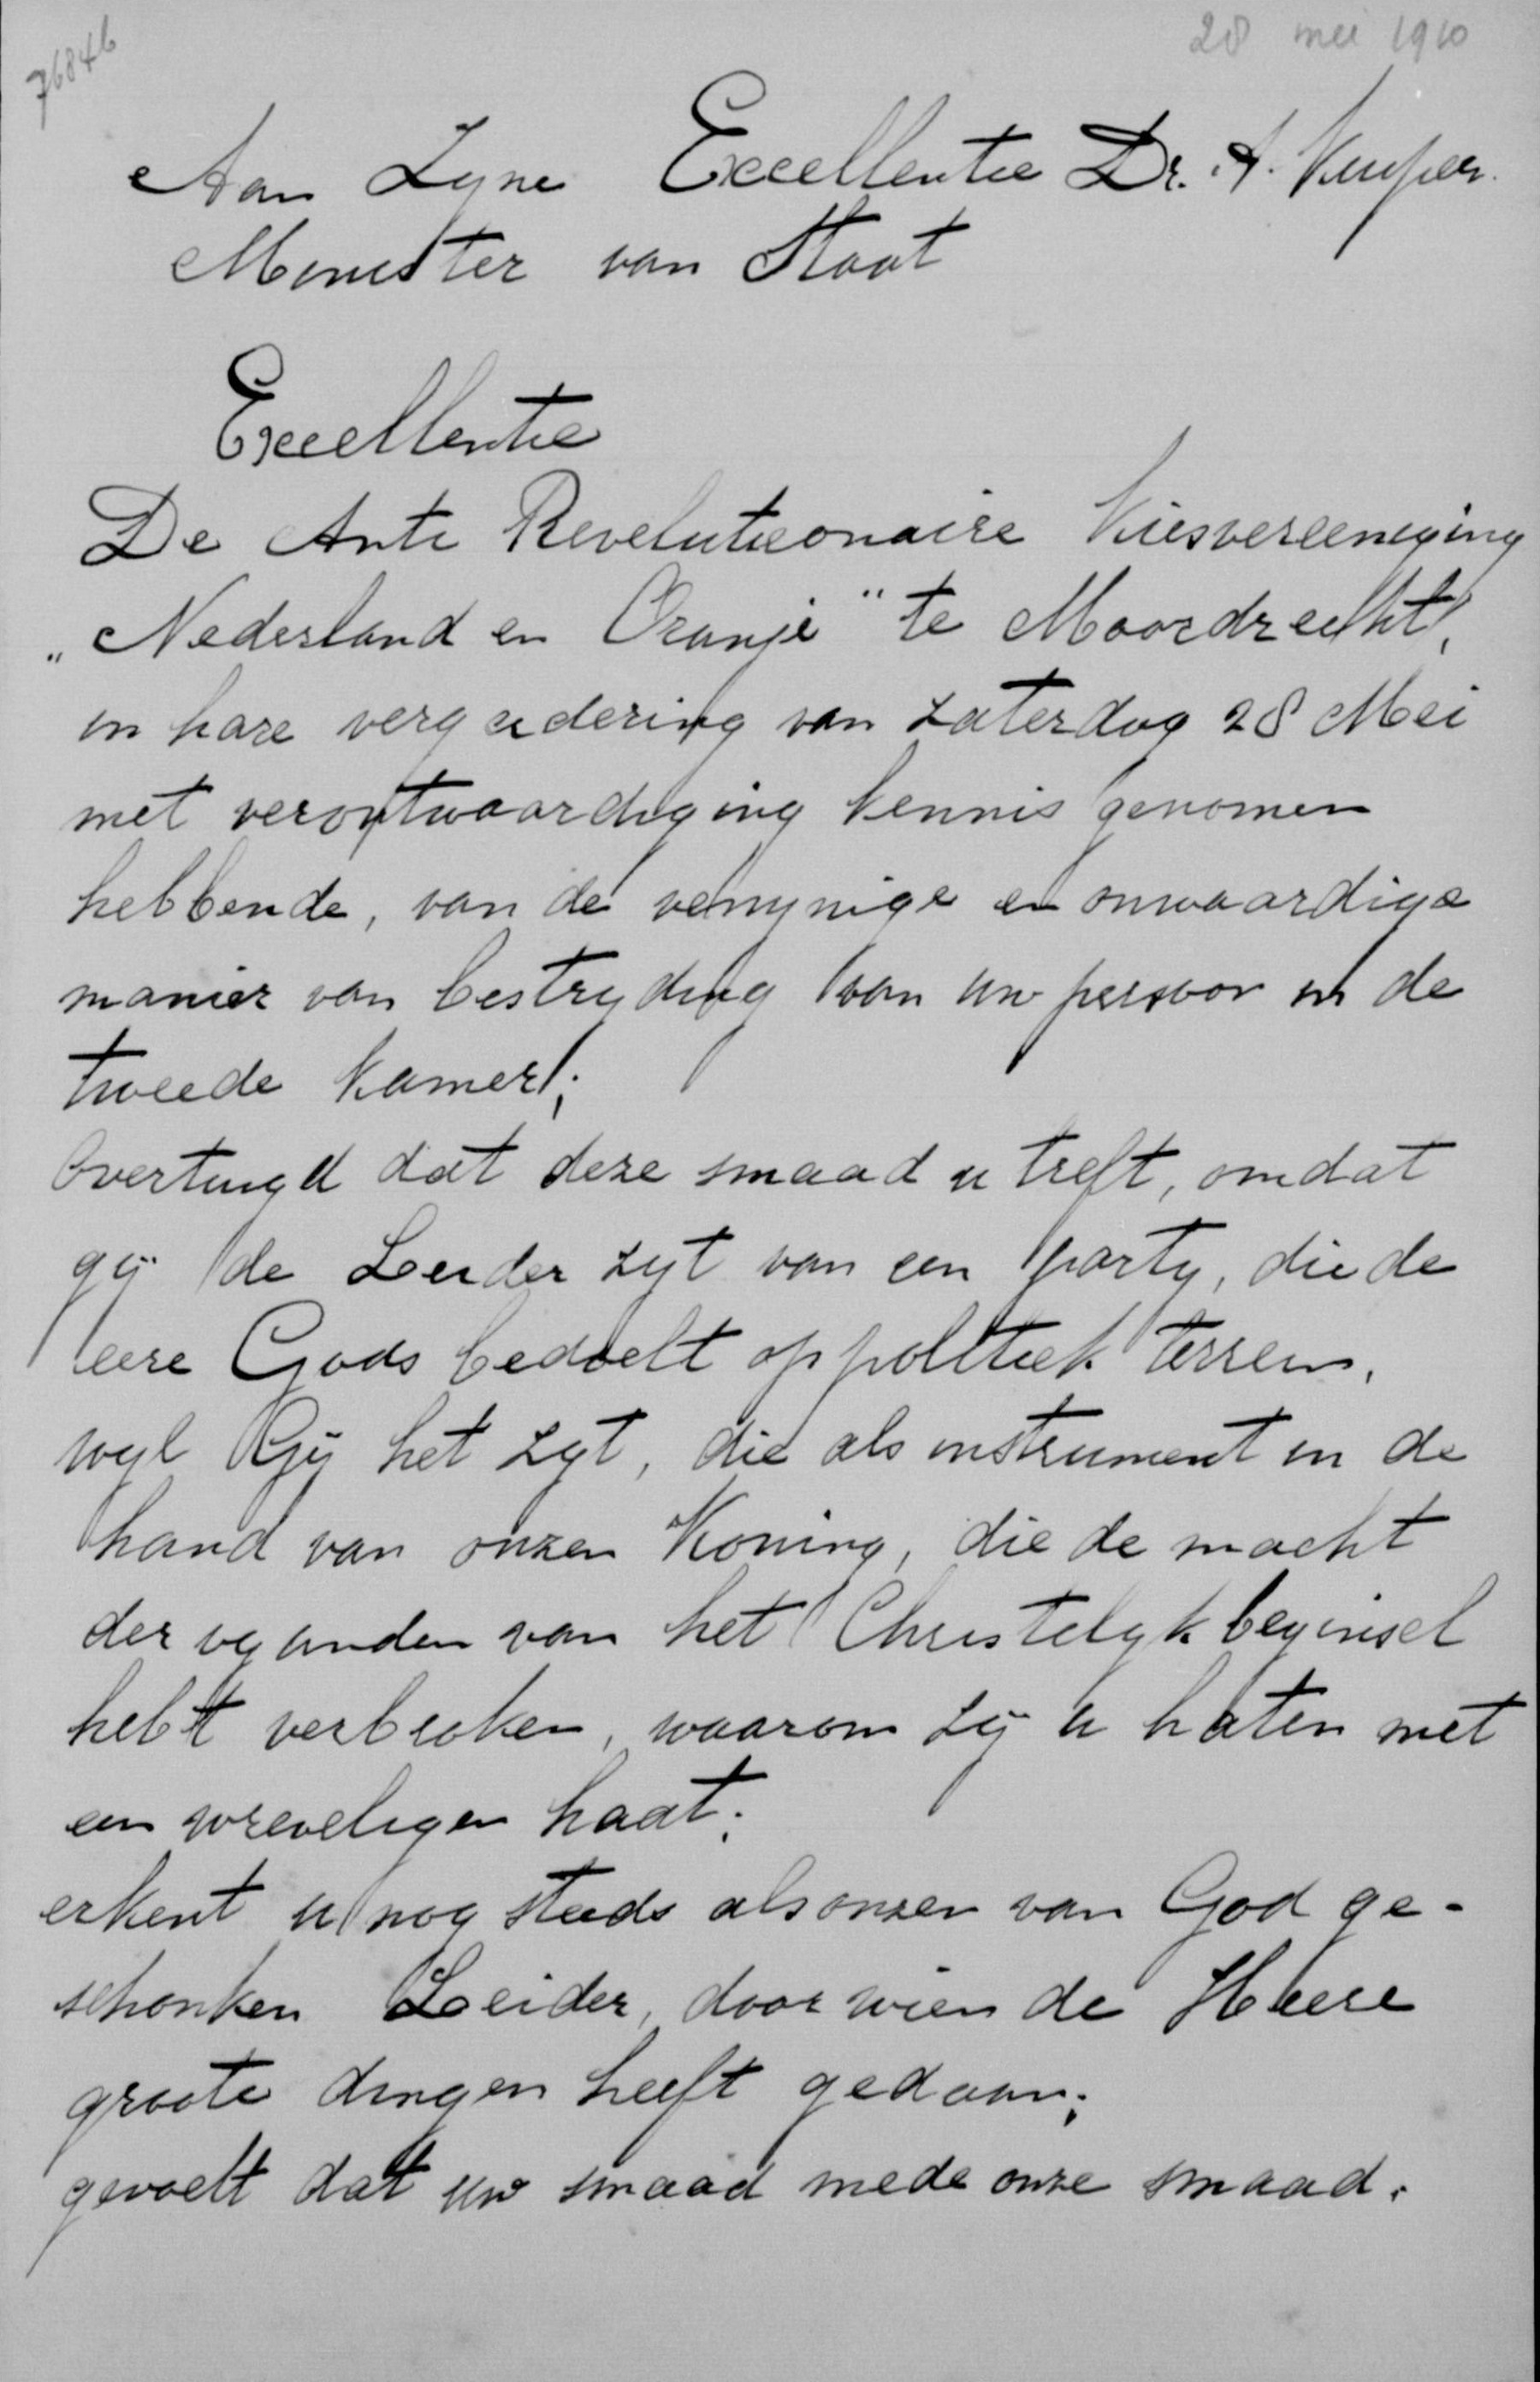 28 mei 1910
7684b
Aan Zyne Excellentie Dr. A. Kuyper.
Minister van Staat
Excellentie
De Anti Revolutionaire Kiesvereeniging
„Nederland en Oranje" te Moordrecht,
in hare vergadering van zaterdag 28 Mei
met verontwaardiging kennis genomen
hebbende, van de venynige en onwaardige
manier van bestryding van uw persoon in de
tweede kamer;
Overtuigd dat deze smaad u treft, omdat
gij de Leider zyt van een party, die de
eere Gods bedoelt op politiek terrein,
wyl Gij het zyt, die als instrument in de
hand van onzen Koning, die de macht
der vyanden van het Christelyk beginsel
hebt verbroken, waarom zij u haten met
een wreveligen haat;
erkent u nog steeds als onzen van God ge-
schonken Leider, door wien de Heere
groote dingen heeft gedaan;
gevoelt dat uw smaad mede onze smaad.